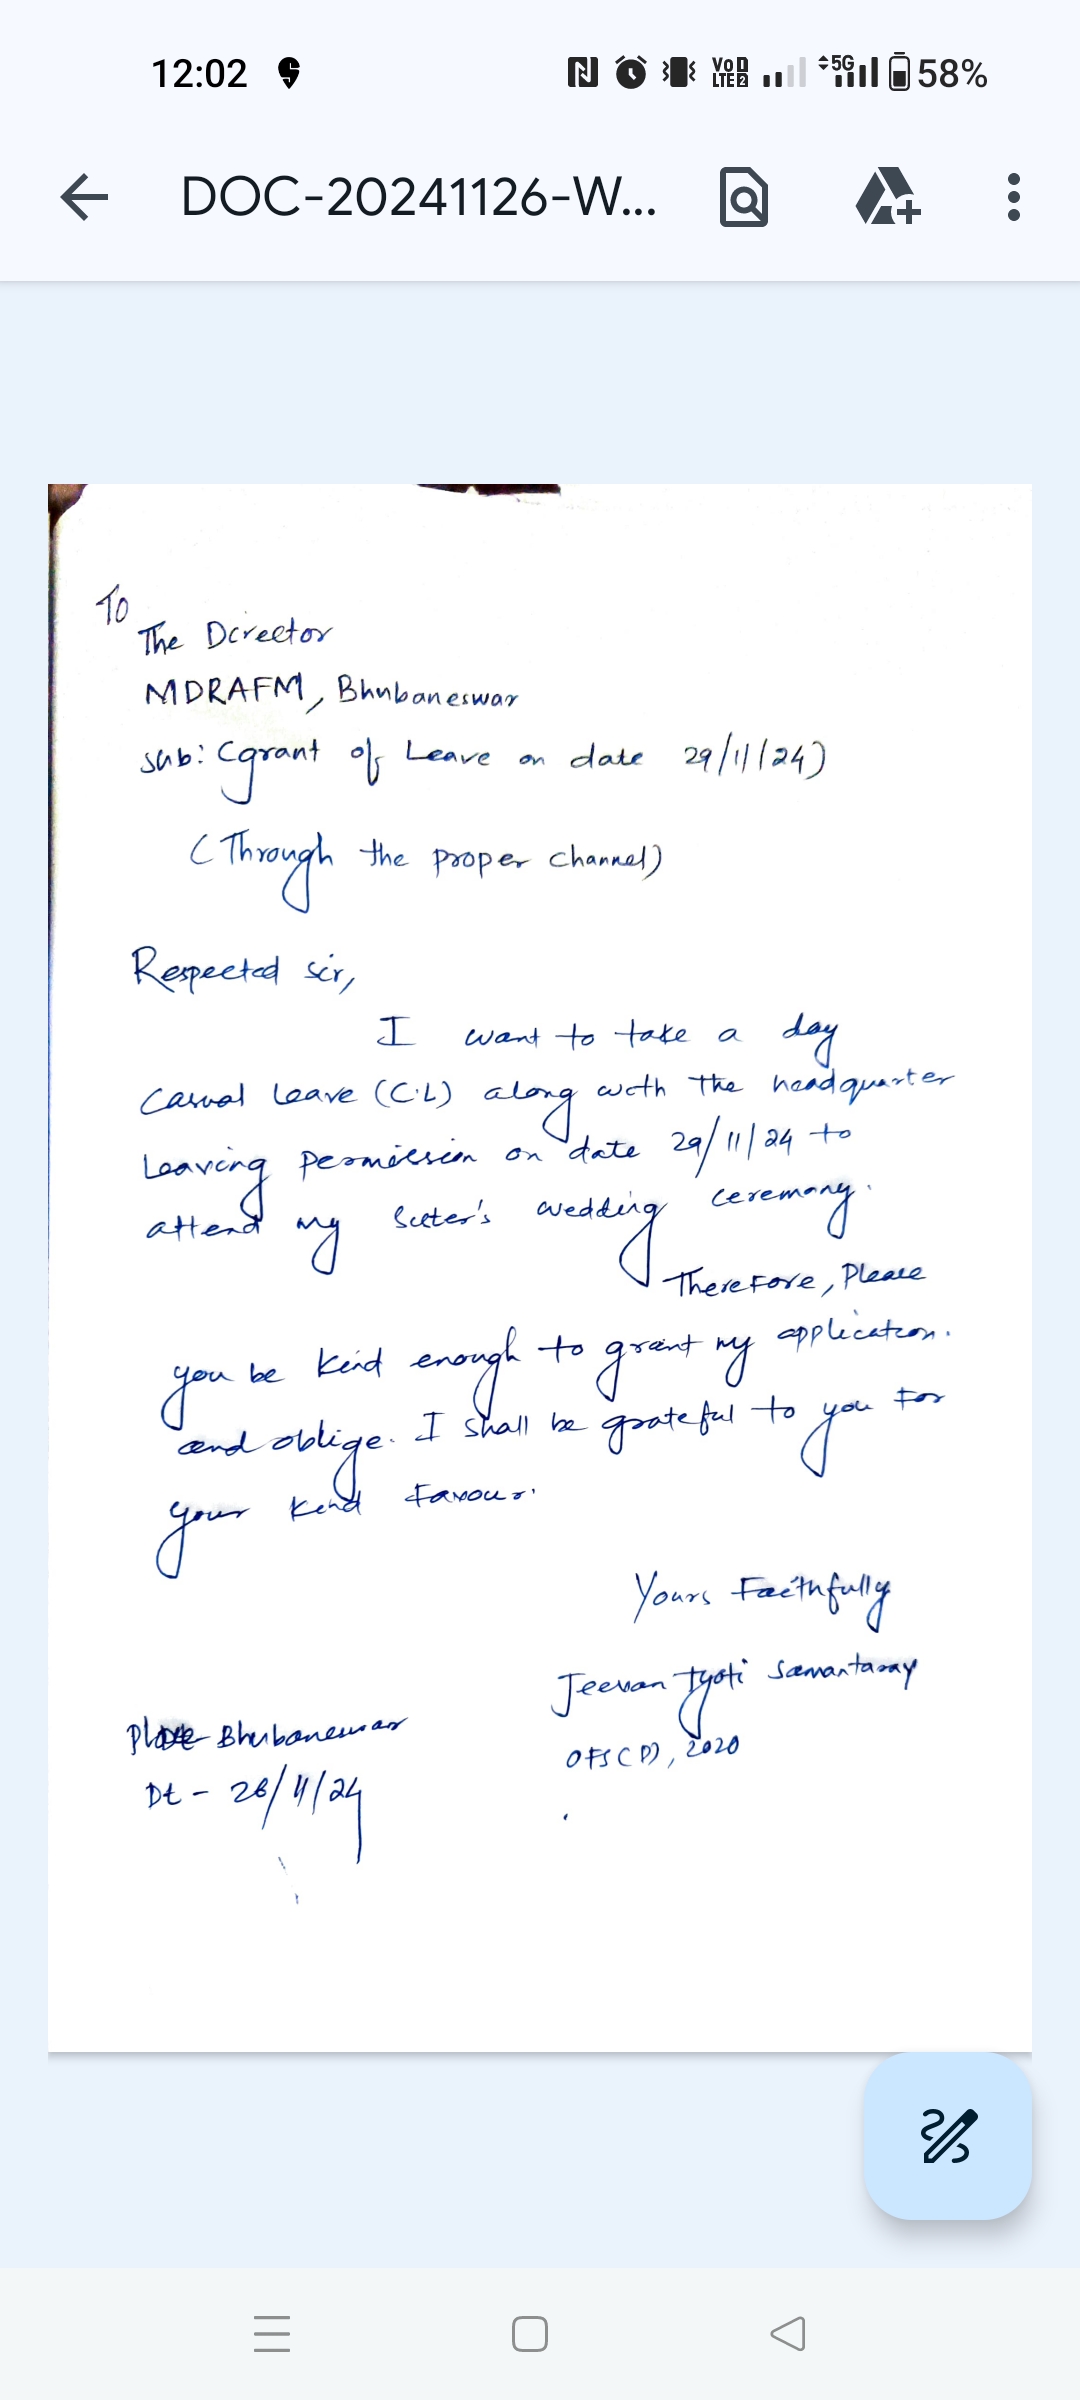 12:02 VoD LTE2 5G 58%
DOC-20241126-W...
To
The Director
MDRAFM, Bhubaneswar
sub: (grant of Leave on date 29/11/24)
(Through the proper channel)
Respected sir,
I want to take a day
Casual Leave (C.L) along with the headquarter
Leaving permission on date 29/11/24 to
attend my sister's wedding ceremony.
Therefore, Please
you be kind enough to grant my application.
and oblige. I shall be grateful to you for
your kind favour.
Yours Faithfully
Jeevan Jyoti Samantaray
OFS(P), 2020
Place Bhubaneswar
Dt - 26/11/24